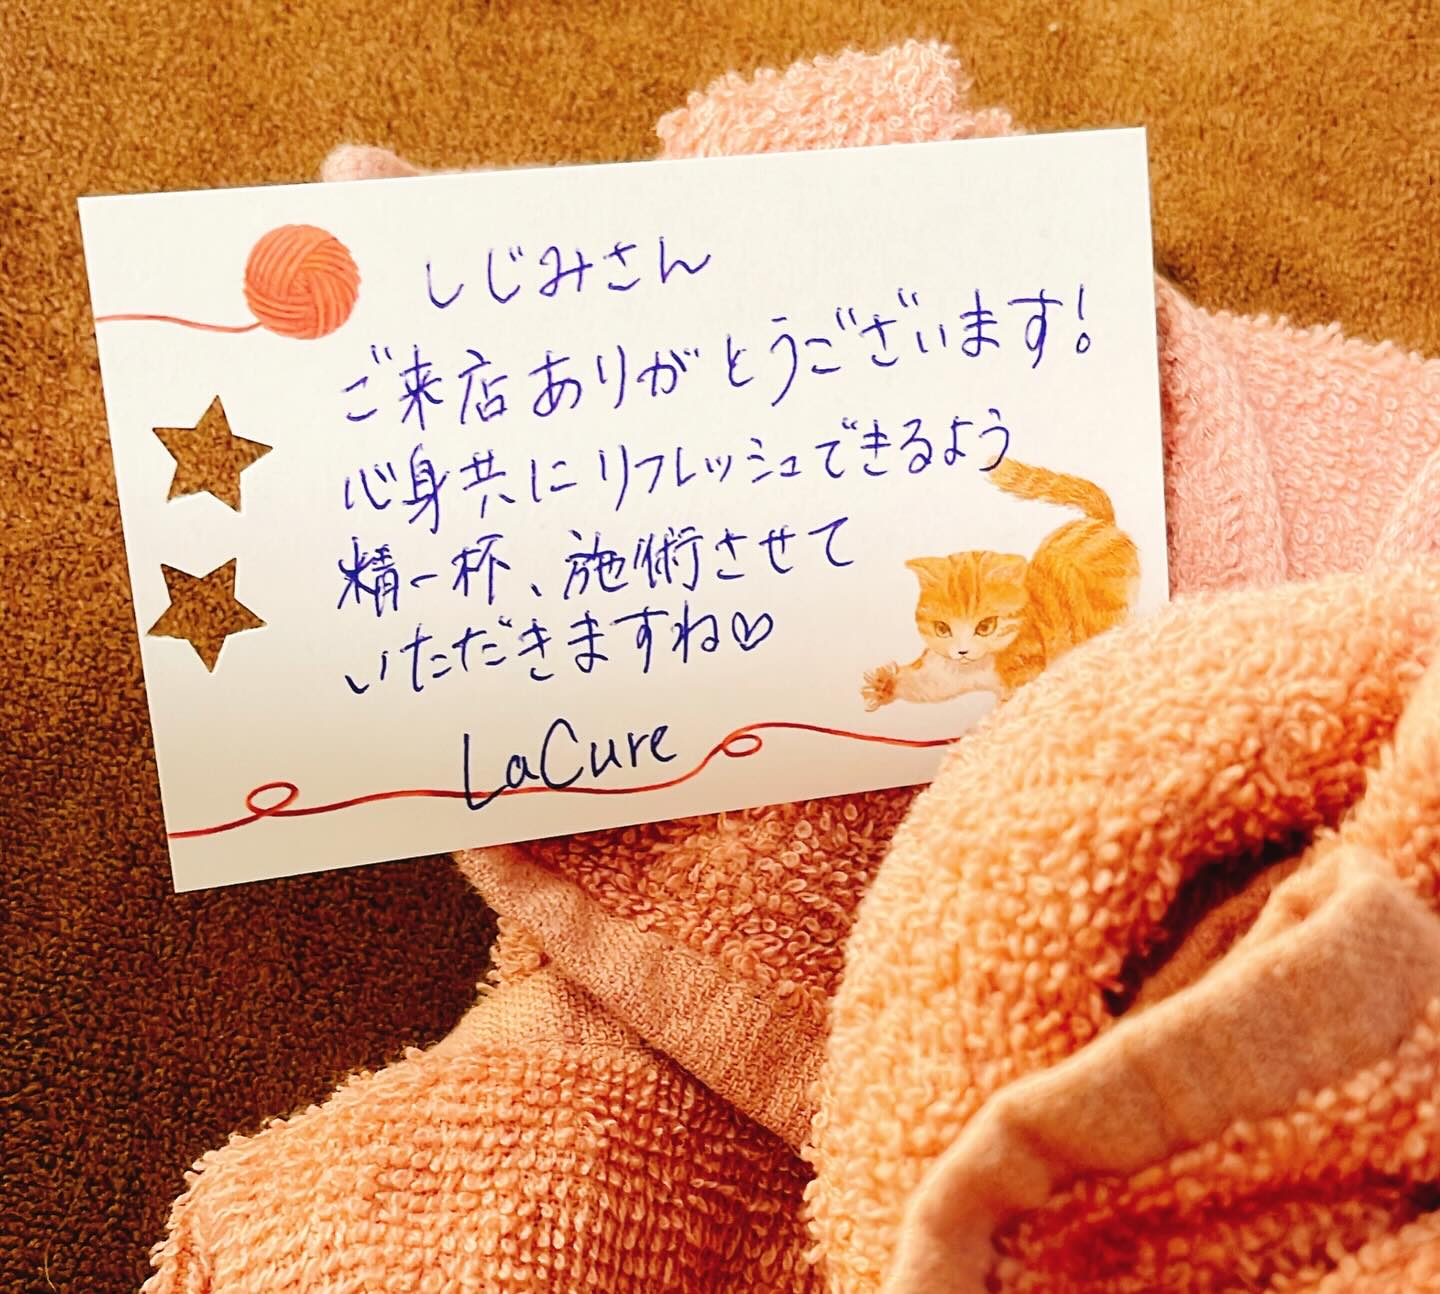 しじみさん
ご来店ありがとうございます!
心身共にリフレッシュできるよう
精一杯、施術させて
いただきますね♡
LaCure